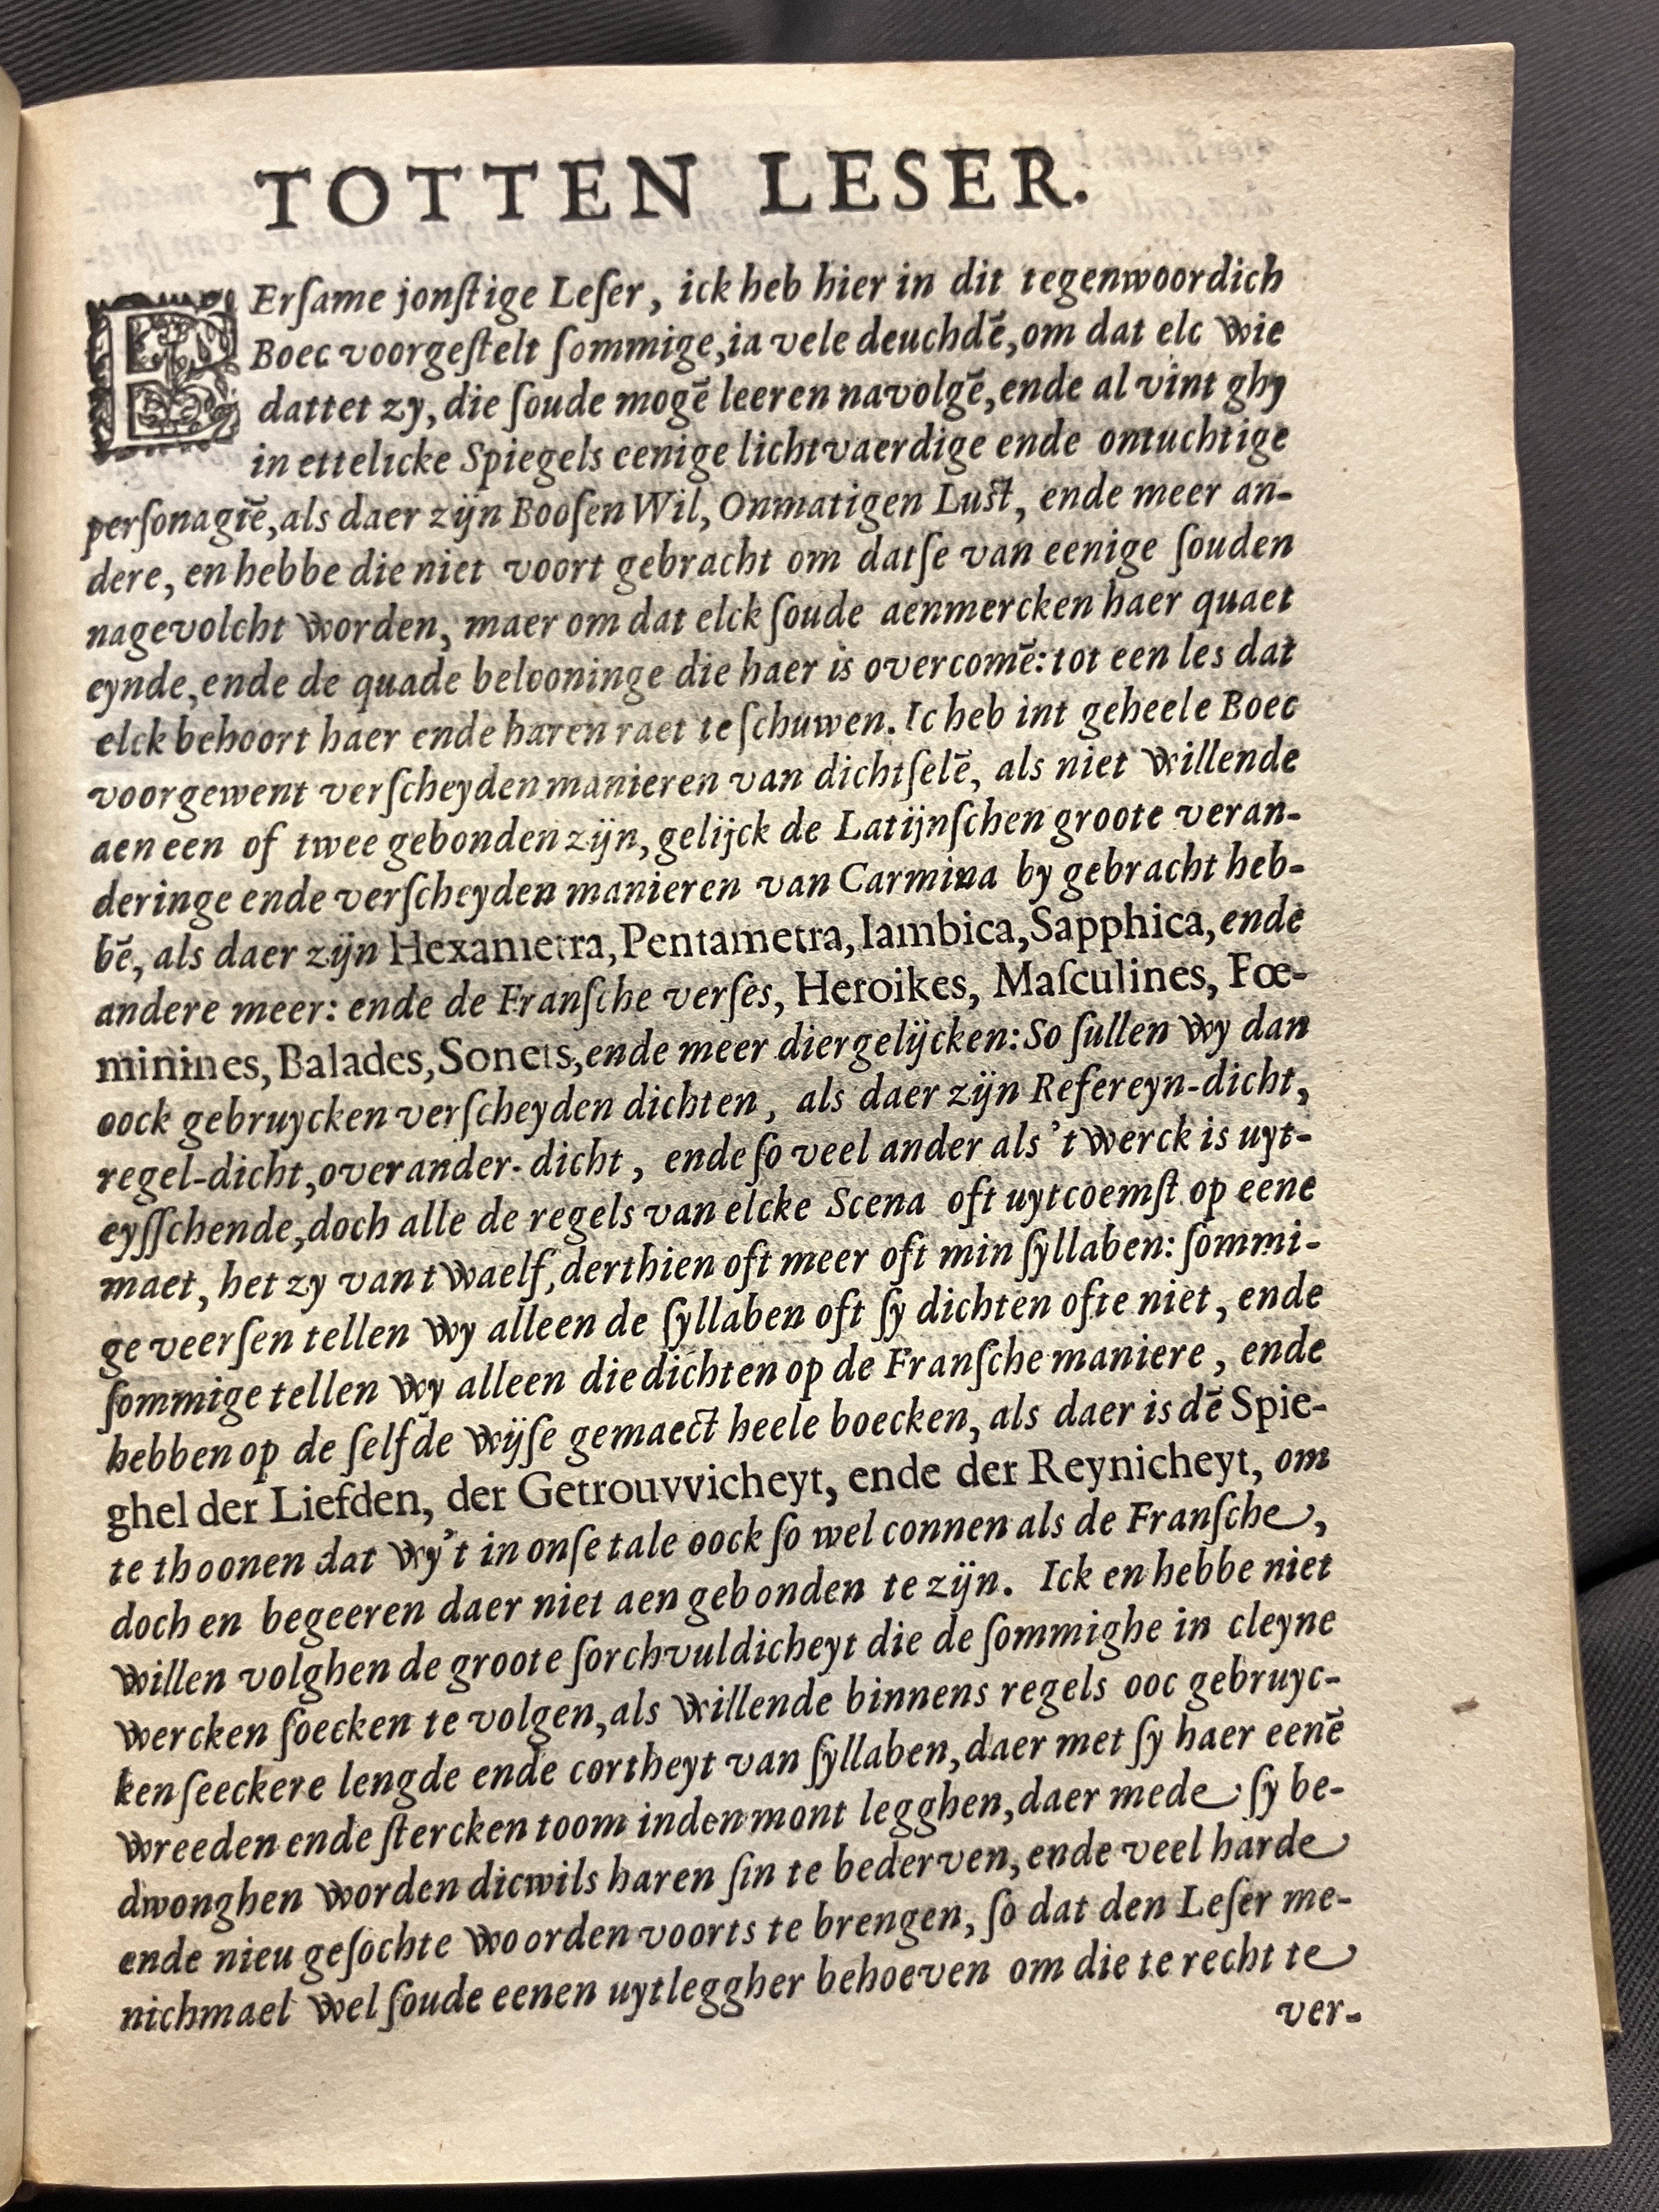 TOTTEN LESER.
EErſame jonſtige Leſer, ick heb hier in dit tegenwoordich
Boec voorgeſtelt ſommige,ia vele deuchdē,om dat elc wie
dattet zy,die ſoude mogē leeren navolgē,ende al vint ghy
in ettelicke Spiegels eenige lichtvaerdige ende ontuchtige
perſonagiē,als daer zijn Booſen Wil,Onmatigen Luſt, ende meer an-
dere, en hebbe die niet voort gebracht om datſe van eenige ſouden
nagevolcht worden, maer om dat elck ſoude aenmercken haer quaet
eynde,ende de quade belooninge die haer is overcomē: tot een les dat
elck behoort haer ende haren raet te ſchuwen. Ic heb int geheele Boec
voorgewent verſcheyden manieren van dichtſelē, als niet willende
aen een of twee gebonden zijn, gelijck de Latijnſchen groote veran-
deringe ende verſcheyden manieren van Carmina by gebracht heb-
bē, als daer zijn Hexametra,Pentametra,Iambica,Sapphica,ende
andere meer: ende de Franſche verſes, Heroikes, Maſculines, Fœ-
minines, Balades,Sonets,ende meer diergelijcken: So ſullen wy dan
oock gebruycken verſcheyden dichten, als daer zijn Refereyn-dicht,
regel-dicht,overander-dicht, ende ſo veel ander als 't werck is uyt-
eyſſchende,doch alle de regels van elcke Scena oft uytcoemſt op eene
maet, het zy van twaelf,derthien oft meer oft min ſyllaben: ſommi-
ge veerſen tellen wy alleen de ſyllaben oft ſy dichten ofte niet, ende
ſommige tellen wy alleen die dichten op de Franſche maniere, ende
hebben op de ſelfde wijſe gemaect heele boecken, als daer is dē Spie-
ghel der Liefden, der Getrouvvicheyt, ende der Reynicheyt, om
te thoonen dat wy't in onſe tale oock ſo wel connen als de Franſche,
doch en begeeren daer niet aen gebonden te zijn. Ick en hebbe niet
willen volghen de groote ſorchvuldicheyt die de ſommighe in cleyne
wercken ſoecken te volgen,als willende binnens regels ooc gebruyc-
ken ſeeckere lengde ende cortheyt van ſyllaben,daer met ſy haer eenē
wreeden ende ſtercken toom inden mont legghen,daer mede ſy be-
dwonghen worden dicwils haren ſin te bederven,ende veel harde
ende nieu geſochte woorden voorts te brengen, ſo dat den Leſer me-
nichmael wel ſoude eenen uytleggher behoeven om die te recht te
ver-